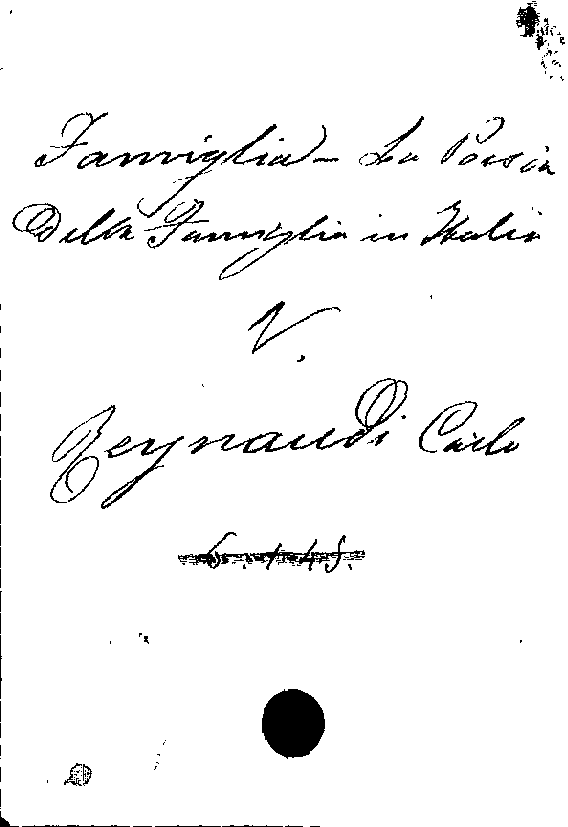 Famiglia - La Poesia
Della Famiglia in Italia
V.
Reynaudi Carlo